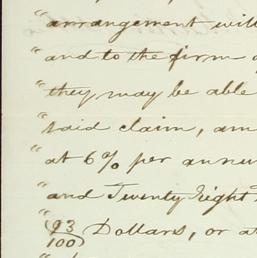 "arrangement will
"and to the firm
"they may be able
"said claim, am
"at 6% per annu
"and Twenty Eight
"93/100 Dollars, or a